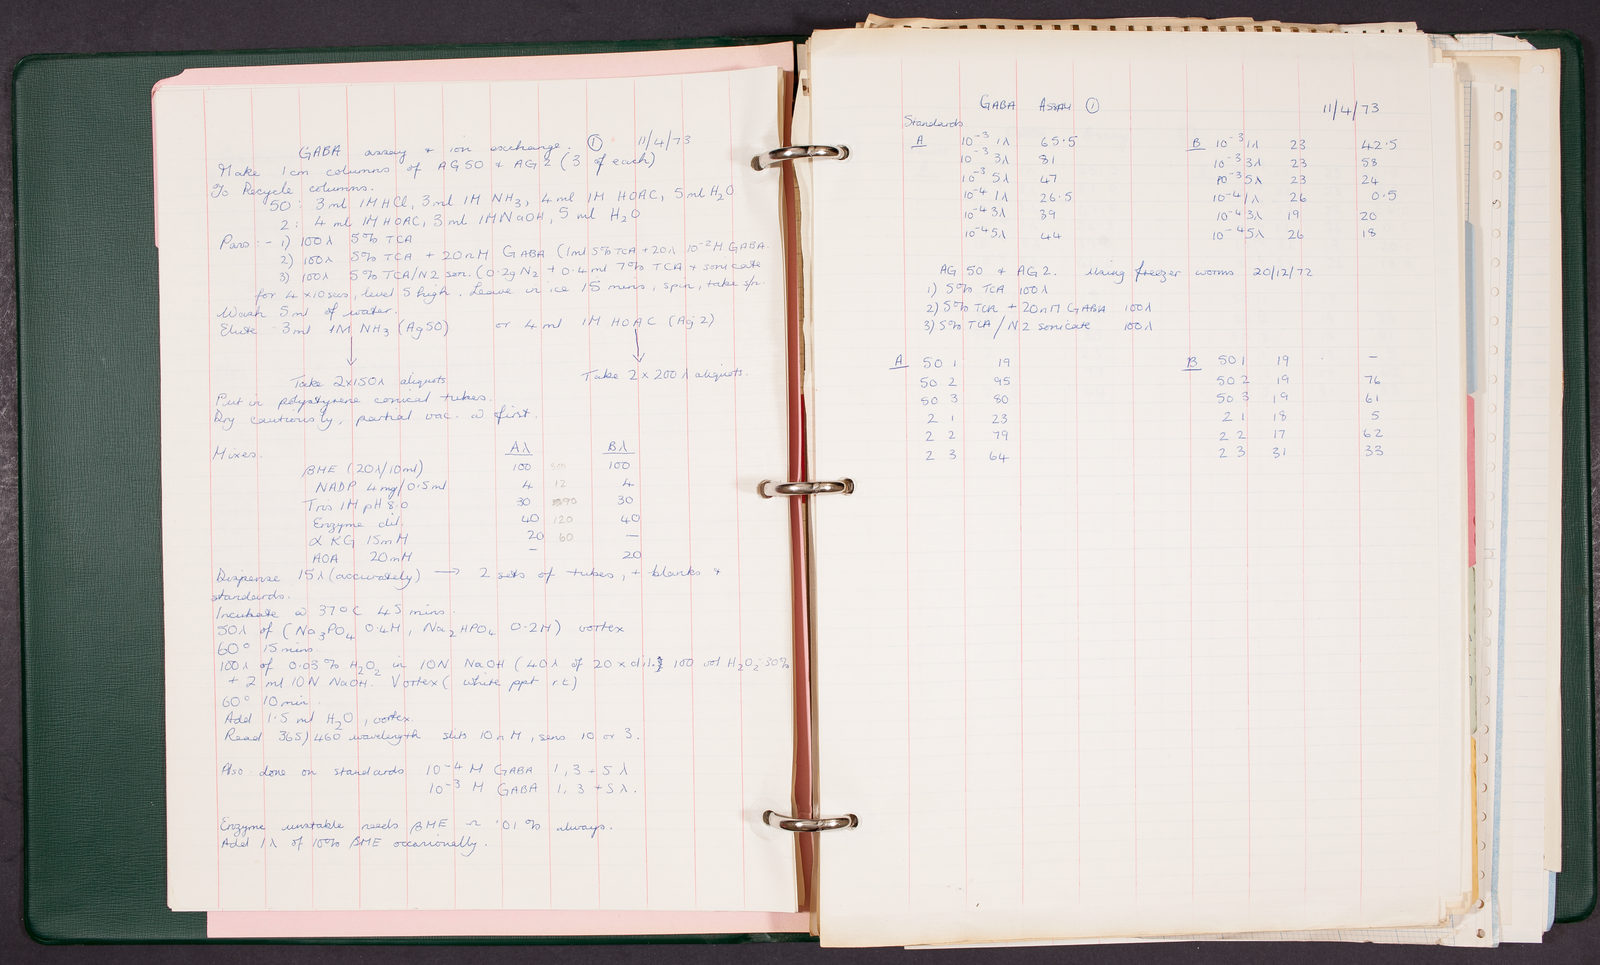 GABA assay + ion exchange. ① 11/4/73
Make 1cm columns of AG50 + AG2 (3 of each)
To Recycle columns.
50: 3ml 1M HCl, 3ml 1M NH3, 4ml 1M HOAC, 5ml H2O
2: 4ml 1M HOAC, 3ml 1M NaOH, 5ml H2O
Pass:- 1) 100λ 5% TCA
2) 100λ 5% TCA + 20nM GABA (1ml 5% TCA + 20λ 10-2M GABA.
3) 100λ 5% TCA/N2 son. (0.2g N2 + 0.4ml 7% TCA + sonicate
for 4 x 10secs, level 5 high. Leave in ice 15 mins, spin, take sp.
Wash 5ml of water.
Elute 3ml 1M NH3 (Ag50) or 4ml 1M HOAC (Ag2)
Take 2x150λ aliquots Take 2x200λ aliquots.
Put in polystyrene conical tubes.
Dry cautiously, partial vac. @ first.
Mixes. Aλ Bλ
βME (20λ/10ml) 100 300 100
NADP 4mg/0.5ml 4 12 4
Tris 1M pH 8.0 30 90 30
Enzyme dil. 40 120 40
α KG 15mM 20 60 —
AOA 20mM — 20
Dispense 15λ (accurately) → 2 sets of tubes, + blanks +
standards.
Incubate @ 37°C 45 mins.
50λ of (Na3PO4 0.4M, Na2HPO4 0.2M) vortex
60° 15 mins
100λ of 0.03% H2O2 in 10N NaOH (40λ of 20 x dil. 100 vol H2O2-30%
+ 2 ml 10N NaOH. Vortex (white ppt r.t)
60° 10 min.
Add 1.5 ml H2O, vortex.
Read 365/460 wavelength slits 10nM, sens 10 or 3.
Also done on standards 10-4 M GABA 1, 3 + 5 λ
10-3 M GABA 1, 3 + 5 λ.
Enzyme unstable needs βME ~ .01% always.
Add 1λ of 10% βME occasionally.
GABA Assay ① 11/4/73
Standards
A 10-3 1λ 65.5 B 10-3 1λ 23 42.5
10-3 3λ 81 10-3 3λ 23 58
10-3 5λ 47 10-3 5λ 23 24
10-4 1λ 26.5 10-4 1λ 26 0.5
10-4 3λ 39 10-4 3λ 19 20
10-4 5λ 44 10-4 5λ 26 18
AG 50 + AG2. Using freezer worms 20/12/72
1) 5% TCA 100λ
2) 5% TCA + 20nM GABA 100λ
3) 5% TCA/N2 sonicate 100λ
A 50 1 19 B 50 1 19 —
50 2 95 50 2 19 76
50 3 80 50 3 19 61
2 1 23 2 1 18 5
2 2 79 2 2 17 62
2 3 64 2 3 31 33